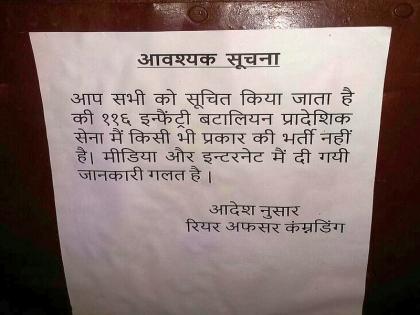 आवश्यक सूचना
आप सभी को सूचित किया जाता है
की ११६ इन्फैंट्री बटालियन प्रादेशिक
सेना मैं किसी भी प्रकार की भर्ती नहीं
है। मीडिया और इन्टरनेट मैं दी गयी
जानकारी गलत है ।
आदेश नुसार
रियर अफसर कंम्नडिंग